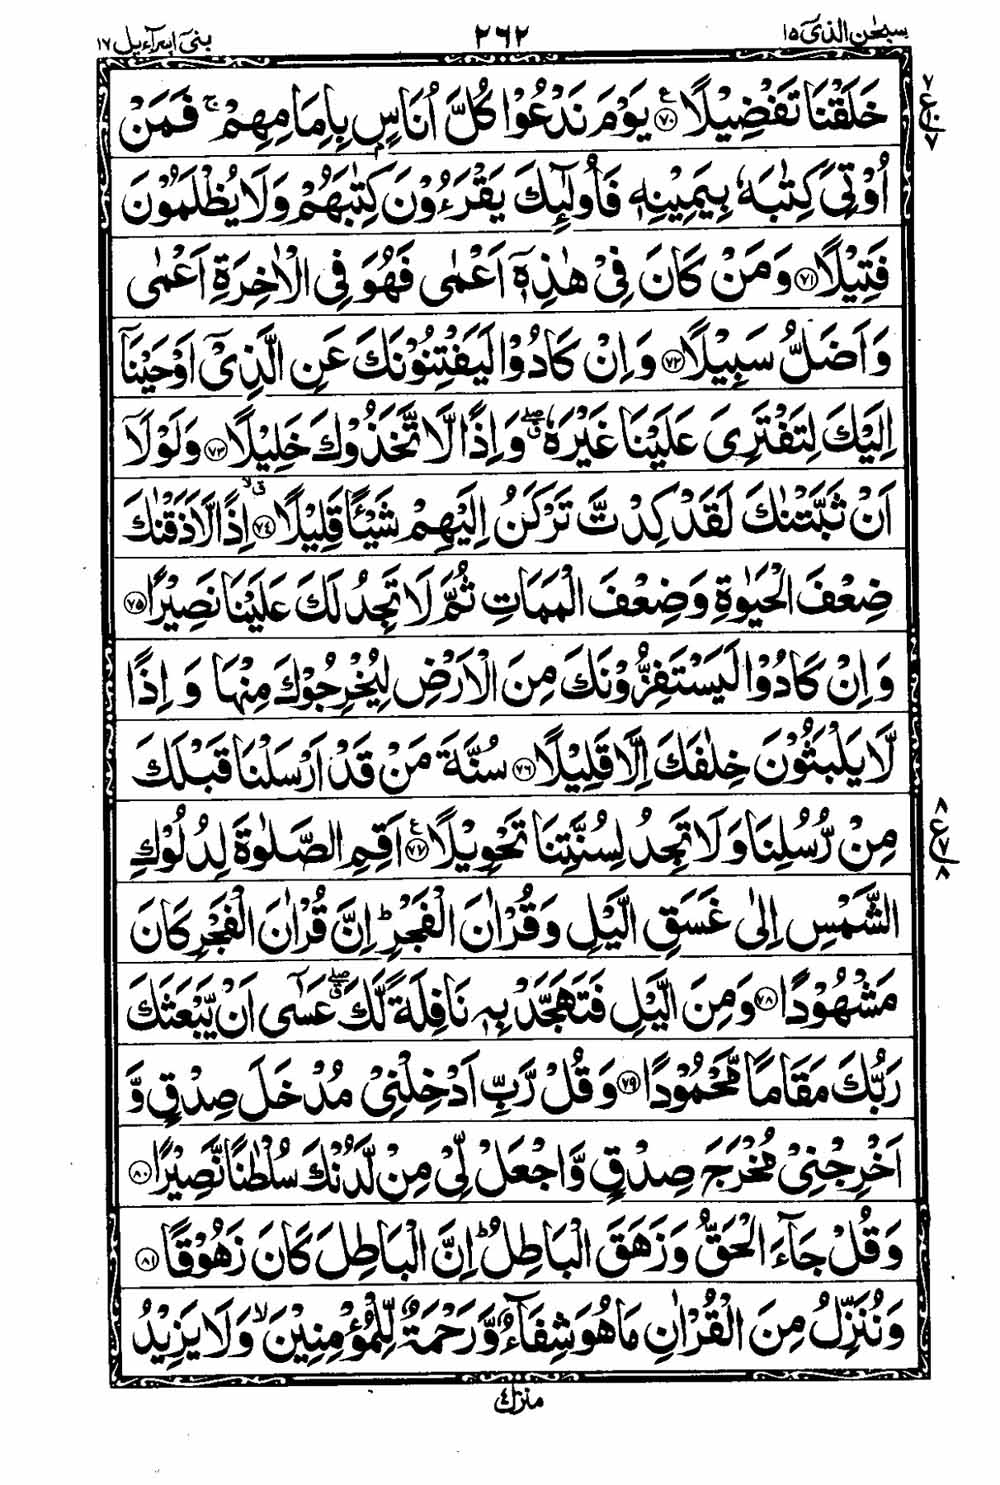 سبحٰن الذیٓ ۱۵
۲۶۲
بنیٓ اسرآءیل ۱۷
خَلَقْنَا تَفْضِیْلًا ۧ﴿۷۰﴾ یَوْمَ نَدْعُوْا كُلَّ اُنَاسٍۭ بِاِمَامِهِمْ ۚ فَمَنْ
۷ ع ۷
اُوْتِیَ كِتٰبَهٗ بِیَمِیْنِهٖ فَاُولٰٓىِٕكَ یَقْرَءُوْنَ كِتٰبَهُمْ وَلَا یُظْلَمُوْنَ
فَتِیْلًا ﴿۷۱﴾ وَمَنْ كَانَ فِیْ هٰذِهٖۤ اَعْمٰی فَهُوَ فِی الْاٰخِرَةِ اَعْمٰی
وَاَضَلُّ سَبِیْلًا ﴿۷۲﴾ وَاِنْ كَادُوْا لَیَفْتِنُوْنَكَ عَنِ الَّذِیْۤ اَوْحَیْنَاۤ
اِلَیْكَ لِتَفْتَرِیَ عَلَیْنَا غَیْرَهٗ ۖۗ وَاِذًا لَّاتَّخَذُوْكَ خَلِیْلًا ﴿۷۳﴾ وَلَوْلَاۤ
اَنْ ثَبَّتْنٰكَ لَقَدْ كِدْتَّ تَرْكَنُ اِلَیْهِمْ شَیْـًٔا قَلِیْلًا ﴿۷۴﴾ ۙۗ اِذًا لَّاَذَقْنٰكَ
ضِعْفَ الْحَیٰوةِ وَضِعْفَ الْمَمَاتِ ثُمَّ لَا تَجِدُ لَكَ عَلَیْنَا نَصِیْرًا ﴿۷۵﴾
وَاِنْ كَادُوْا لَیَسْتَفِزُّوْنَكَ مِنَ الْاَرْضِ لِیُخْرِجُوْكَ مِنْهَا وَاِذًا
لَّا یَلْبَثُوْنَ خِلٰفَكَ اِلَّا قَلِیْلًا ﴿۷۶﴾ سُنَّةَ مَنْ قَدْ اَرْسَلْنَا قَبْلَكَ
مِنْ رُّسُلِنَا وَلَا تَجِدُ لِسُنَّتِنَا تَحْوِیْلًا ۧ﴿۷۷﴾ اَقِمِ الصَّلٰوةَ لِدُلُوْكِ
۸ ع ۷ ۸
الشَّمْسِ اِلٰی غَسَقِ الَّیْلِ وَقُرْاٰنَ الْفَجْرِ ؕ اِنَّ قُرْاٰنَ الْفَجْرِ كَانَ
مَشْهُوْدًا ﴿۷۸﴾ وَمِنَ الَّیْلِ فَتَهَجَّدْ بِهٖ نَافِلَةً لَّكَ ۖۗ عَسٰۤی اَنْ یَّبْعَثَكَ
رَبُّكَ مَقَامًا مَّحْمُوْدًا ﴿۷۹﴾ وَقُلْ رَّبِّ اَدْخِلْنِیْ مُدْخَلَ صِدْقٍ وَّ
اَخْرِجْنِیْ مُخْرَجَ صِدْقٍ وَّاجْعَلْ لِّیْ مِنْ لَّدُنْكَ سُلْطٰنًا نَّصِیْرًا ﴿۸۰﴾
وَقُلْ جَآءَ الْحَقُّ وَزَهَقَ الْبَاطِلُ ؕ اِنَّ الْبَاطِلَ كَانَ زَهُوْقًا ﴿۸۱﴾
وَنُنَزِّلُ مِنَ الْقُرْاٰنِ مَا هُوَ شِفَآءٌ وَّرَحْمَةٌ لِّلْمُؤْمِنِیْنَ ۙ وَلَا یَزِیْدُ
منزل ۴